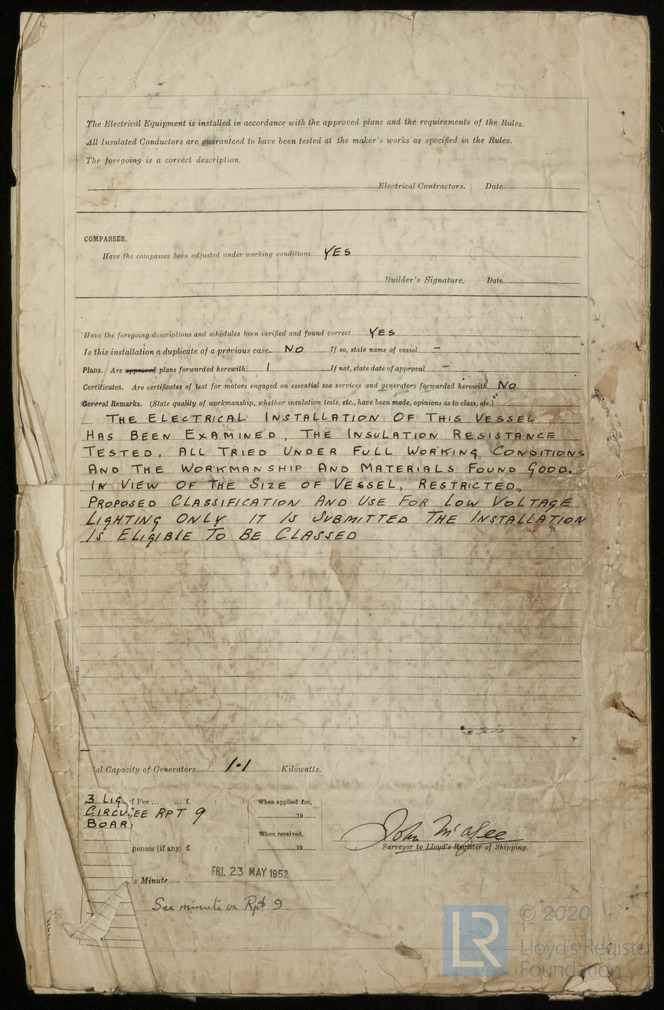 The Electrical Equipment is installed in accordance with the approved plans and the requirements of the Rules.
All Insulated Conductors are guaranteed to have been tested at the maker's works as specified in the Rules.
The foregoing is a correct description.
Electrical Contractors. Date
COMPASSES.
Have the compasses been adjusted under working conditions YES
Builder's Signature. Date
Have the foregoing descriptions and schedules been verified and found correct YES
Is this installation a duplicate of a previous case NO If so, state name of vessel -
Plans. Are approved plans forwarded herewith 1 If not, state date of approval -
Certificates. Are certificates of test for motors engaged on essential sea services and generators forwarded herewith NO
General Remarks. (State quality of workmanship, whether insulation tests, etc., have been made, opinions as to class, etc.)
THE ELECTRICAL INSTALLATION OF THIS VESSEL
HAS BEEN EXAMINED, THE INSULATION RESISTANCE
TESTED, ALL TRIED UNDER FULL WORKING CONDITIONS
AND THE WORKMANSHIP AND MATERIALS FOUND GOOD.
IN VIEW OF THE SIZE OF VESSEL, RESTRICTED
PROPOSED CLASSIFICATION AND USE FOR LOW VOLTAGE
LIGHTING ONLY IT IS SUBMITTED THE INSTALLATION
IS ELIGIBLE TO BE CLASSED
al Capacity of Generators 1.1 Kilowatts.
3 LIG f Fee £ When applied for,
CIRCU EE RPT 9 19
BOAR When received,
penses (if any) £ 19
John McAfee
Surveyor to Lloyd's Register of Shipping.
s Minute FRI. 23 MAY 1952
See minute on Rpt 9
LR © 2020
Lloyd's Register
Foundation